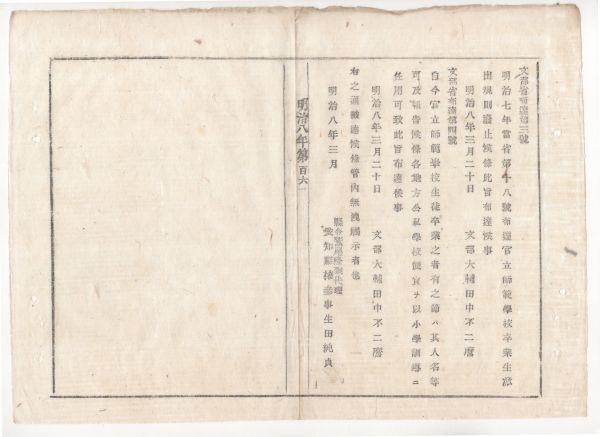 文部省布達第三號
明治七年當省第十八號布達官立師範學校卒業生派
出規則廢止候條此旨布達候事
明治八年三月二十日 文部大輔田中不二麿
文部省布達第四號
自今官立師範學校生徒卒業之者有之節ハ其人名等
可及報告候條各地方公私學校便宜ヲ以小學訓導ニ
任用可致此旨布達候事
明治八年三月二十日 文部大輔田中不二麿
右之通被達候條管內無洩觸示者也
明治八年三月
愛知縣權參事生田純貞
明治八年第百六一